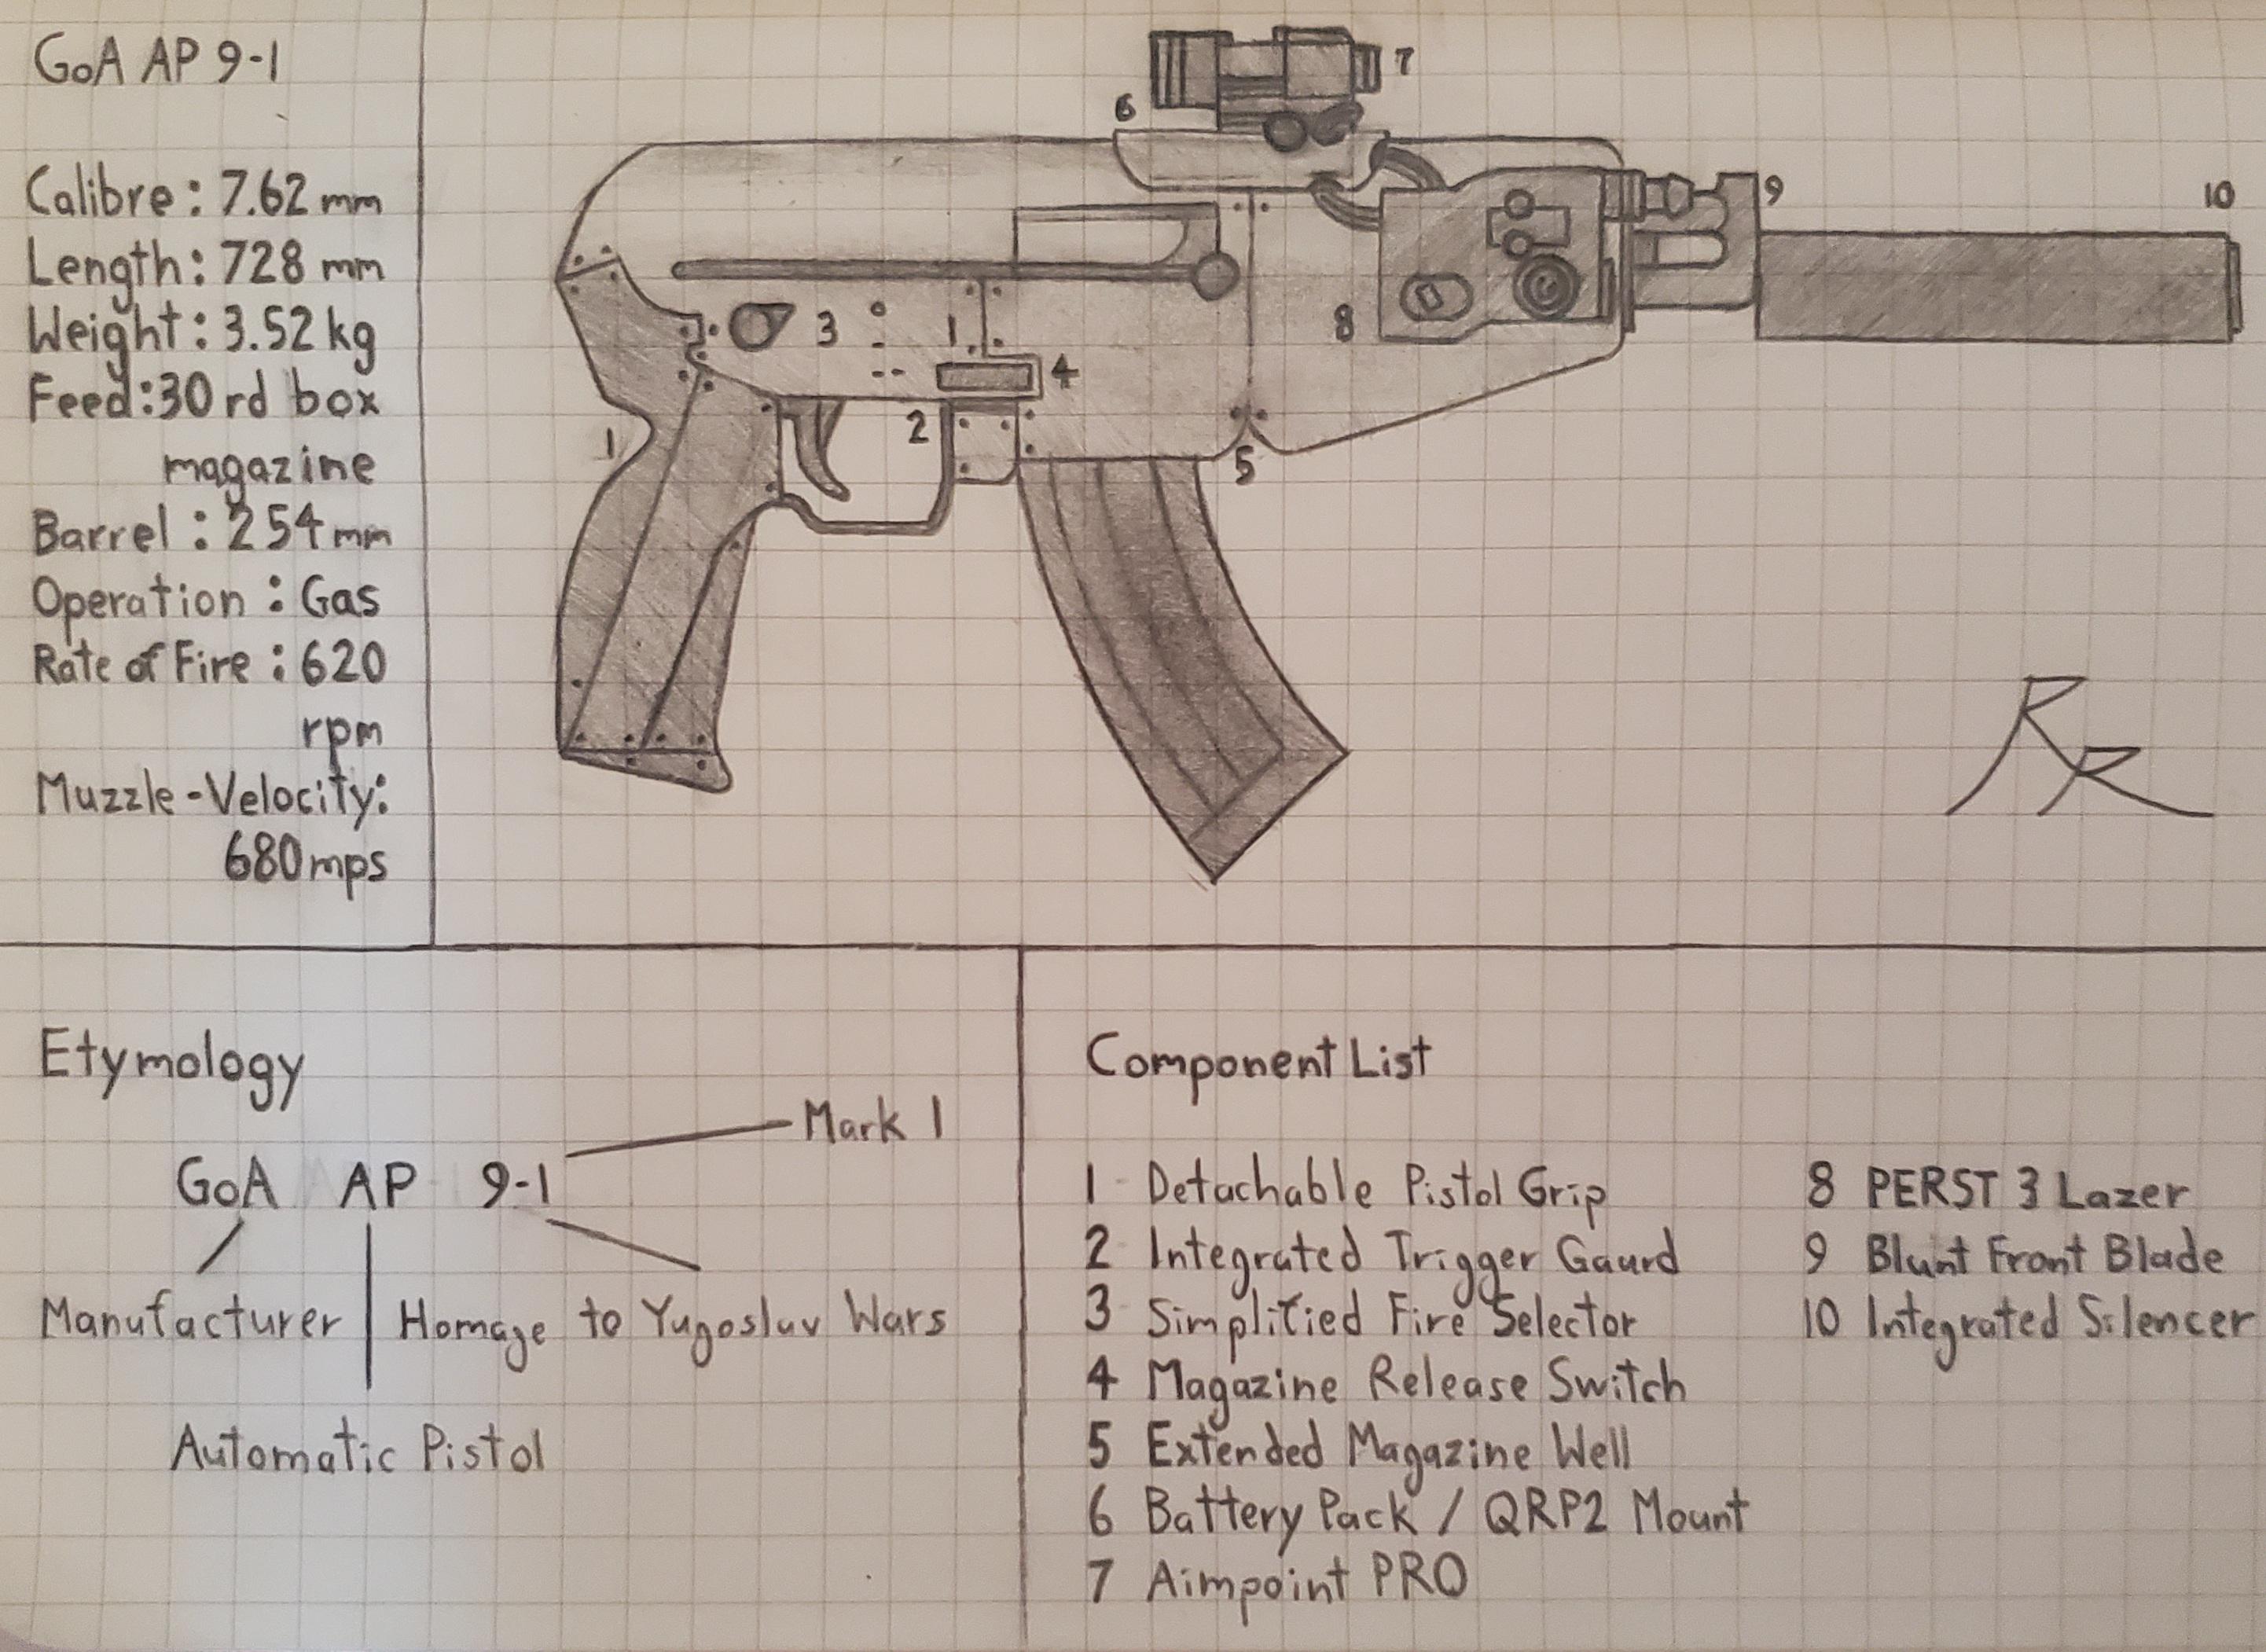 GoA AP 9-1
Calibre: 7.62 mm
Length: 728 mm
Weight: 3.52 kg
Feed: 30 rd box
magazine
Barrel: 254 mm
Operation: Gas
Rate of Fire: 620
rpm
Muzzle-Velocity:
680 mps
7
6
9
10
3
1
8
4
2
1
5
Etymology
Mark 1
GoA AP 9-1
Manufacturer
Homage to Yugoslav Wars
Automatic Pistol
Component List
1 Detachable Pistol Grip
2 Integrated Trigger Gaurd
3 Simplified Fire Selector
4 Magazine Release Switch
5 Extended Magazine Well
6 Battery Pack / QRP2 Mount
7 Aimpoint PRO
8 PERST 3 Lazer
9 Blunt Front Blade
10 Integrated Silencer